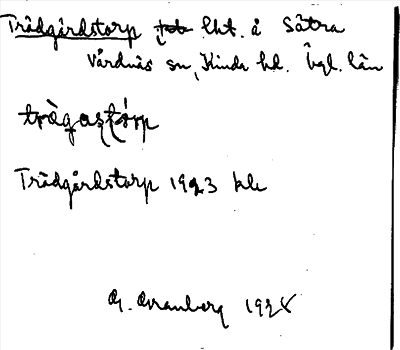 Trädgårdstorp lht. å Sätra
Vårdnäs sn, Kinda hd. Ögl. län
trä̀gaʂtórp
Trädgårdstorp 1923 kb
G. Granberg 1928